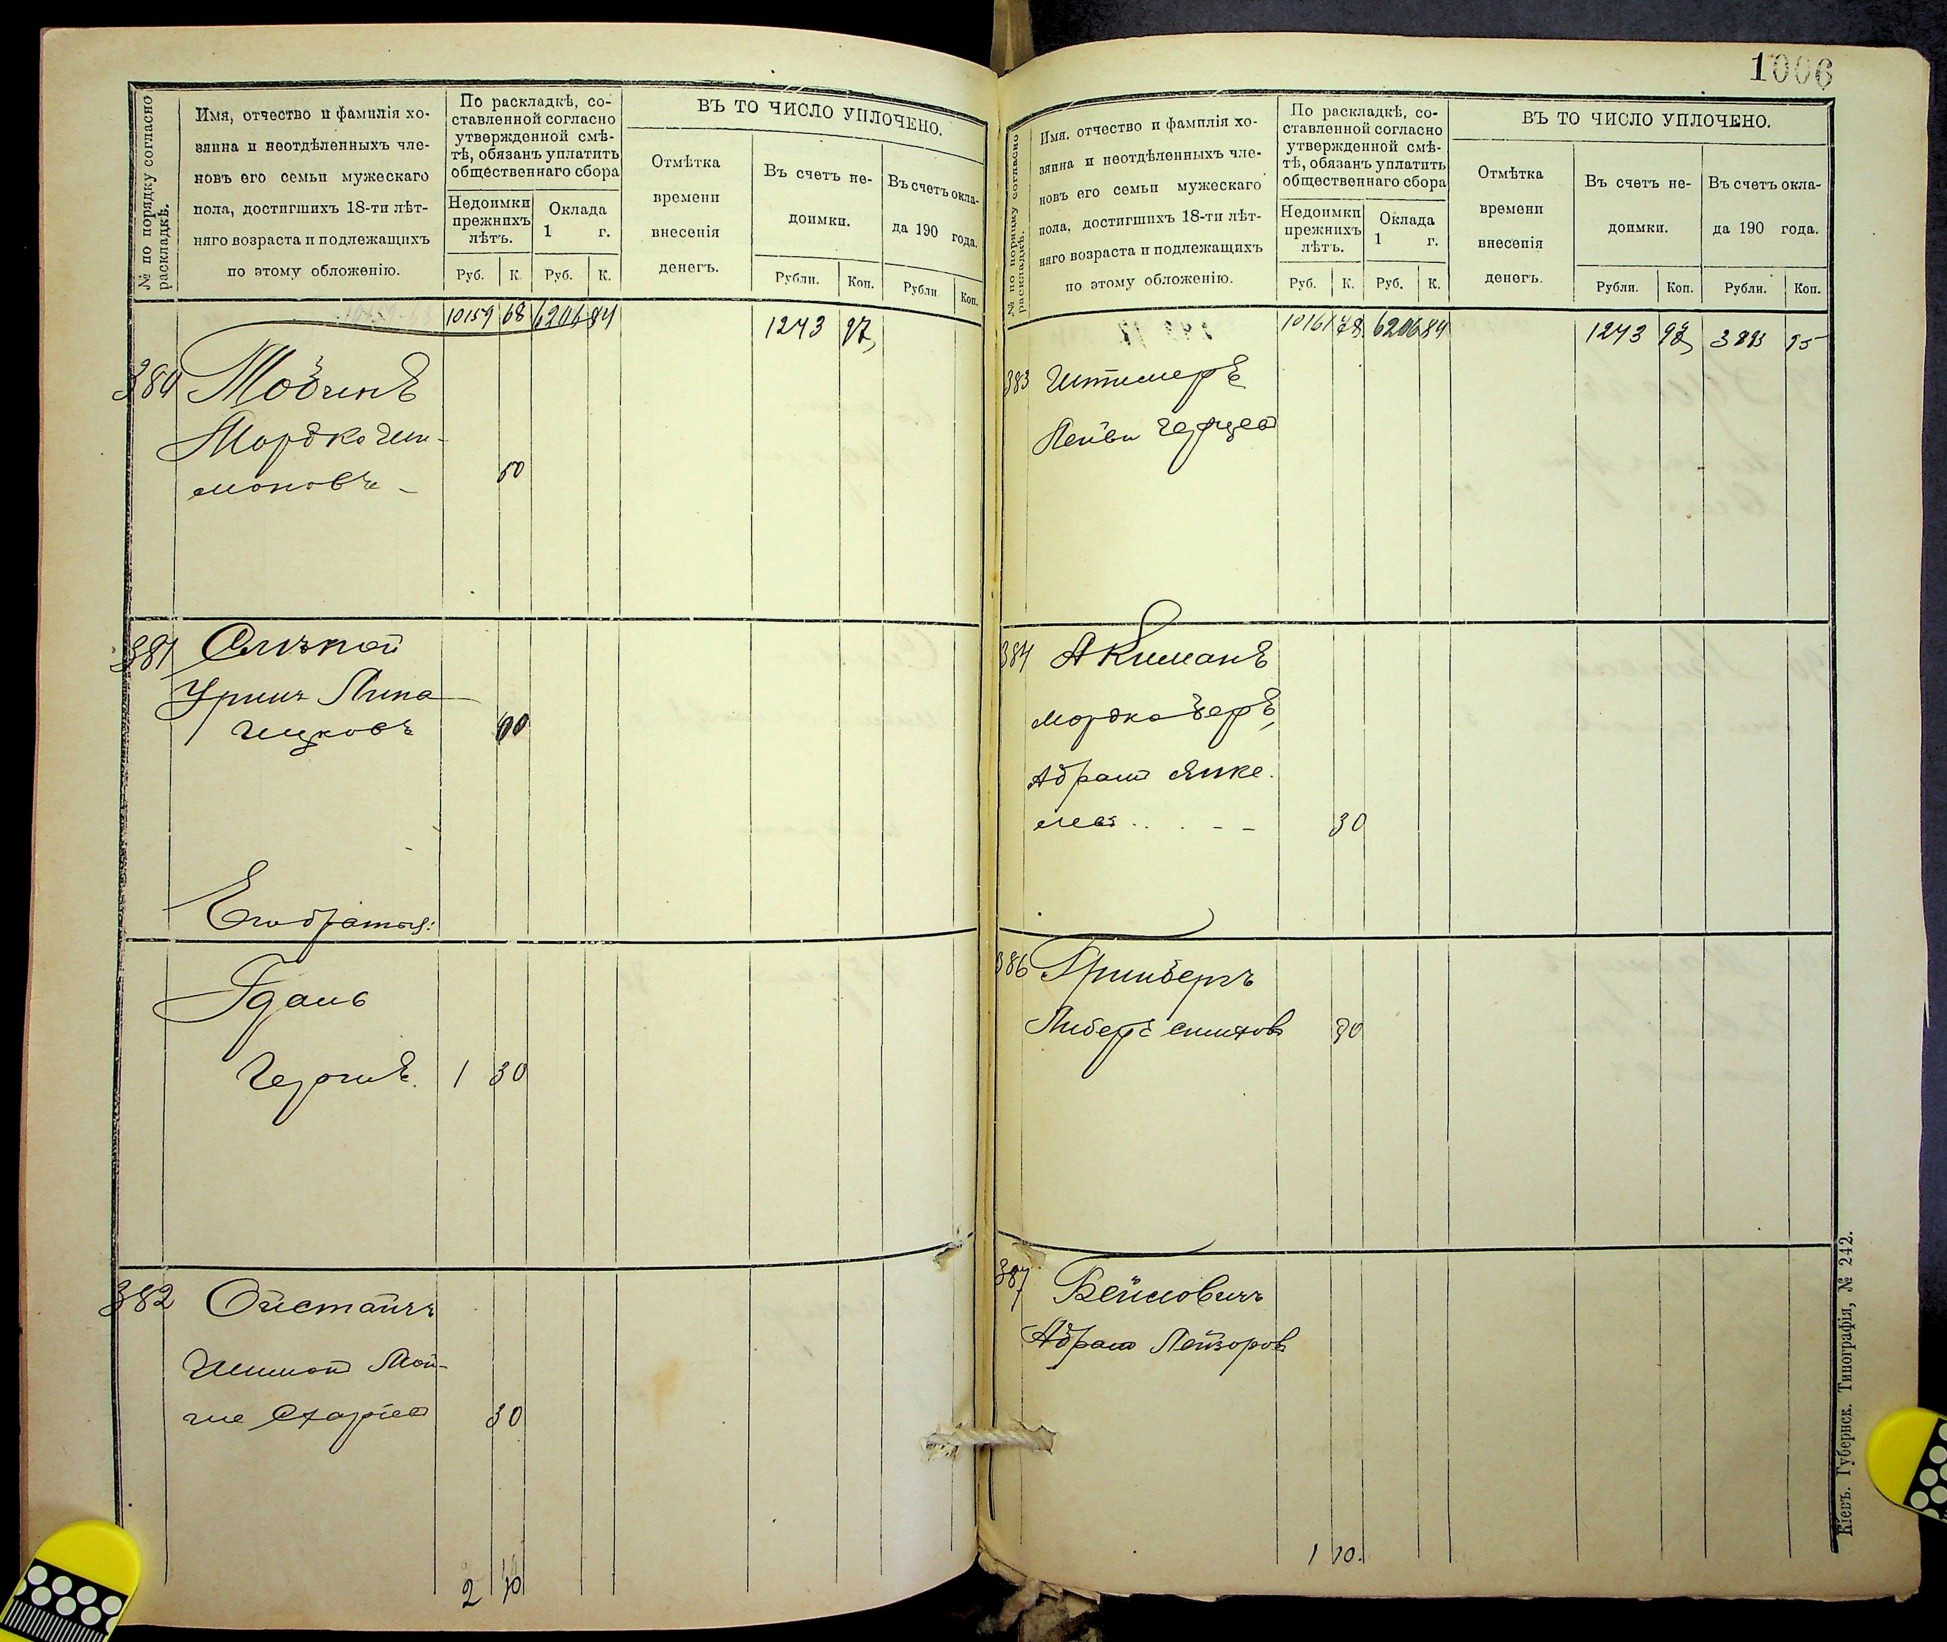 1006
№ по порядку согласно раскладкѣ.
Имя, отчество и фамилія хо-
зяина и неотдѣленныхъ чле-
новъ его семьи мужескаго
пола, достигшихъ 18-ти лѣт-
няго возраста и подлежащихъ
по этому обложенію.
По раскладкѣ, со-
ставленной согласно
утвержденной смѣ-
тѣ, обязанъ уплатить
общественнаго сбора
Недоимки
прежнихъ
лѣтъ.
Оклада
1 г.
Руб. К. Руб. К.
ВЪ ТО ЧИСЛО УПЛОЧЕНО.
Отмѣтка
времени
внесенія
денегъ.
Въ счетъ не-
доимки.
Въ счетъ окла-
да 190 года.
Рубли. Коп. Рубли Коп.
10159 68 6206 84 1243 97
380 Товбинъ
Мордко Ши-
моновъ - 50
381 Слѣпой
Урышъ Липа
Ицковъ 60
Его братья:
Гдаль
Гершъ. 1 30
382 Ойстачъ
Шимон Мой-
ше 30
2 70
№ по порядку согласно раскладкѣ.
Имя, отчество и фамилія хо-
зяина и неотдѣленныхъ чле-
новъ его семьи мужескаго
пола, достигшихъ 18-ти лѣт-
няго возраста и подлежащихъ
по этому обложенію.
По раскладкѣ, со-
ставленной согласно
утвержденной смѣ-
тѣ, обязанъ уплатить
общественнаго сбора
Недоимки
прежнихъ
лѣтъ.
Оклада
1 г.
Руб. К. Руб. К.
ВЪ ТО ЧИСЛО УПЛОЧЕНО.
Отмѣтка
времени
внесенія
денегъ.
Въ счетъ не-
доимки.
Въ счетъ окла-
да 190 года.
Рубли. Коп. Рубли. Коп.
6206 84 1243 97
383
Лейви
384 Акиманъ
Мордко Беръ,
Абрам Янке
лев . . . - - 30
386 Гринбергъ
Либеръ 30
387 Бейловичъ
Абрам Лейзоров
1 10.
Кіевъ. Губернск. Типографія, № 242.